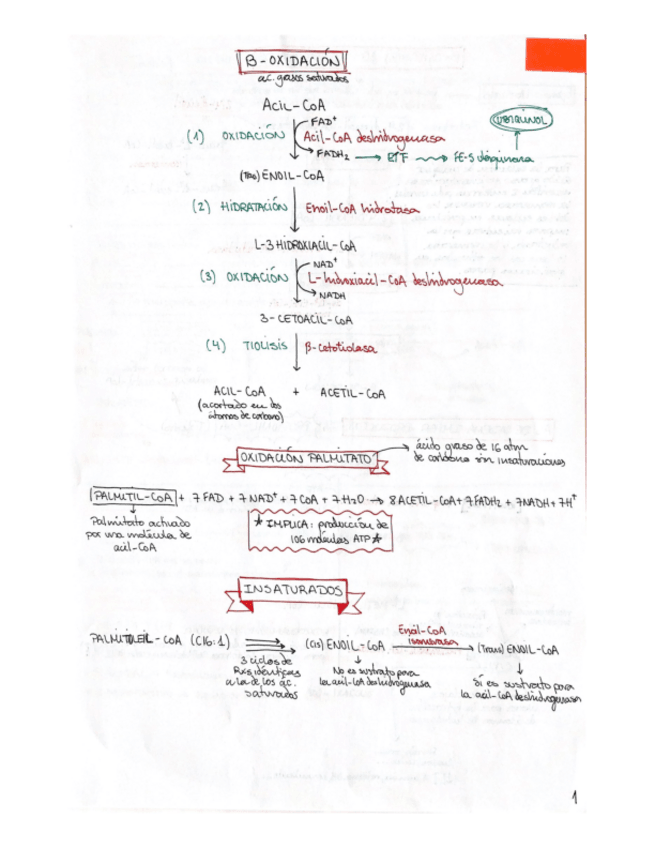 β-OXIDACIÓN
ác. grasos saturados
ACIL-CoA
FAD⁺
(1) OXIDACIÓN Acil-CoA deshidrogenasa
UBIQUINOL
FADH₂ → ETF → FE-S ubiquinona
(Trans) ENOIL-CoA
(2) HIDRATACIÓN Enoil-CoA hidratasa
L-3 HIDROXIACIL-CoA
NAD⁺
(3) OXIDACIÓN L-hidroxiacil-CoA deshidrogenasa
NADH
3-CETOACIL-CoA
(4) TIOLISIS β-cetotiolasa
ACIL-CoA + ACETIL-CoA
(acortado en dos
átomos de carbono)
OXIDACIÓN PALMITATO → ácido graso de 16 atm
de carbono sin insaturaciones
PALMITIL-CoA + 7 FAD + 7 NAD⁺ + 7 CoA + 7 H₂O → 8 ACETIL-CoA + 7 FADH₂ + 7 NADH + 7 H⁺
Palmitato activado
por una molécula de
acil-CoA
* IMPLICA: producción de
106 moléculas ATP *
INSATURADOS
PALMITOLEIL-CoA (C16:1) (Cis) ENOIL-CoA Enoil-CoA isomerasa → (Trans) ENOIL-CoA
3 ciclos de
Rxs idénticas
a la de los ác.
saturados
No es sustrato para
la acil-CoA deshidrogenasa
Sí es sustrato para
la acil-CoA deshidrogenasa
1